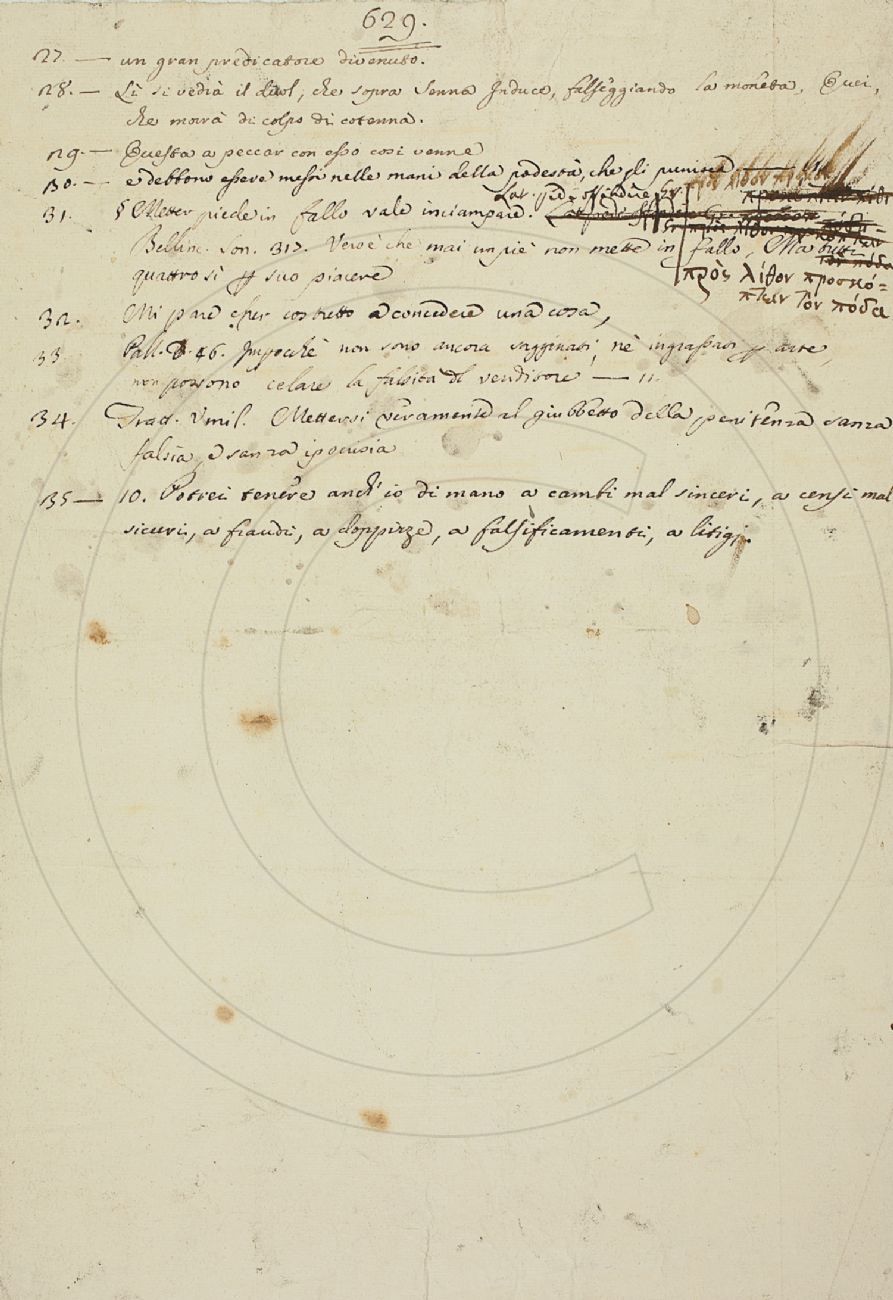 629.
27. — un gran predicatore divenuto.
28. — Lì si vedrà il duol, che sopra Senna Induce, falseggiando la moneta, Quei,
che morrà di colpo di cotenna.
29. — Questa a peccar con esso così venne
30. — e debbono essere messi nelle mani della podestà, che gli punisca
31. § Metter piede in fallo vale inciampare. Lat. pede offendere. Gr.
πρὸς λίθον προσκό=
πτειν τὸν πόδα
Bellinc. Son. 317. Ver'è che mai un piè non mette in fallo, Ma
quattro sì p suo piacere
32. Mi pare esser costretto a concedere una cosa,
33 Pall. 46. Impocchè non sono ancora sagginati, nè ingrassati p arte,
non possono celare la falsità del venditore — 11.
34. Tratt. Umil. Mettersi veramente al giubbetto della penitenza sanza
falsìa, e sanza ipocrisia
35 — 10. Potrei tenere anch'io di mano a cambi mal sinceri, a censi mal
sicuri, a fraudi, a doppiezze, a falsificamenti, a litigj.